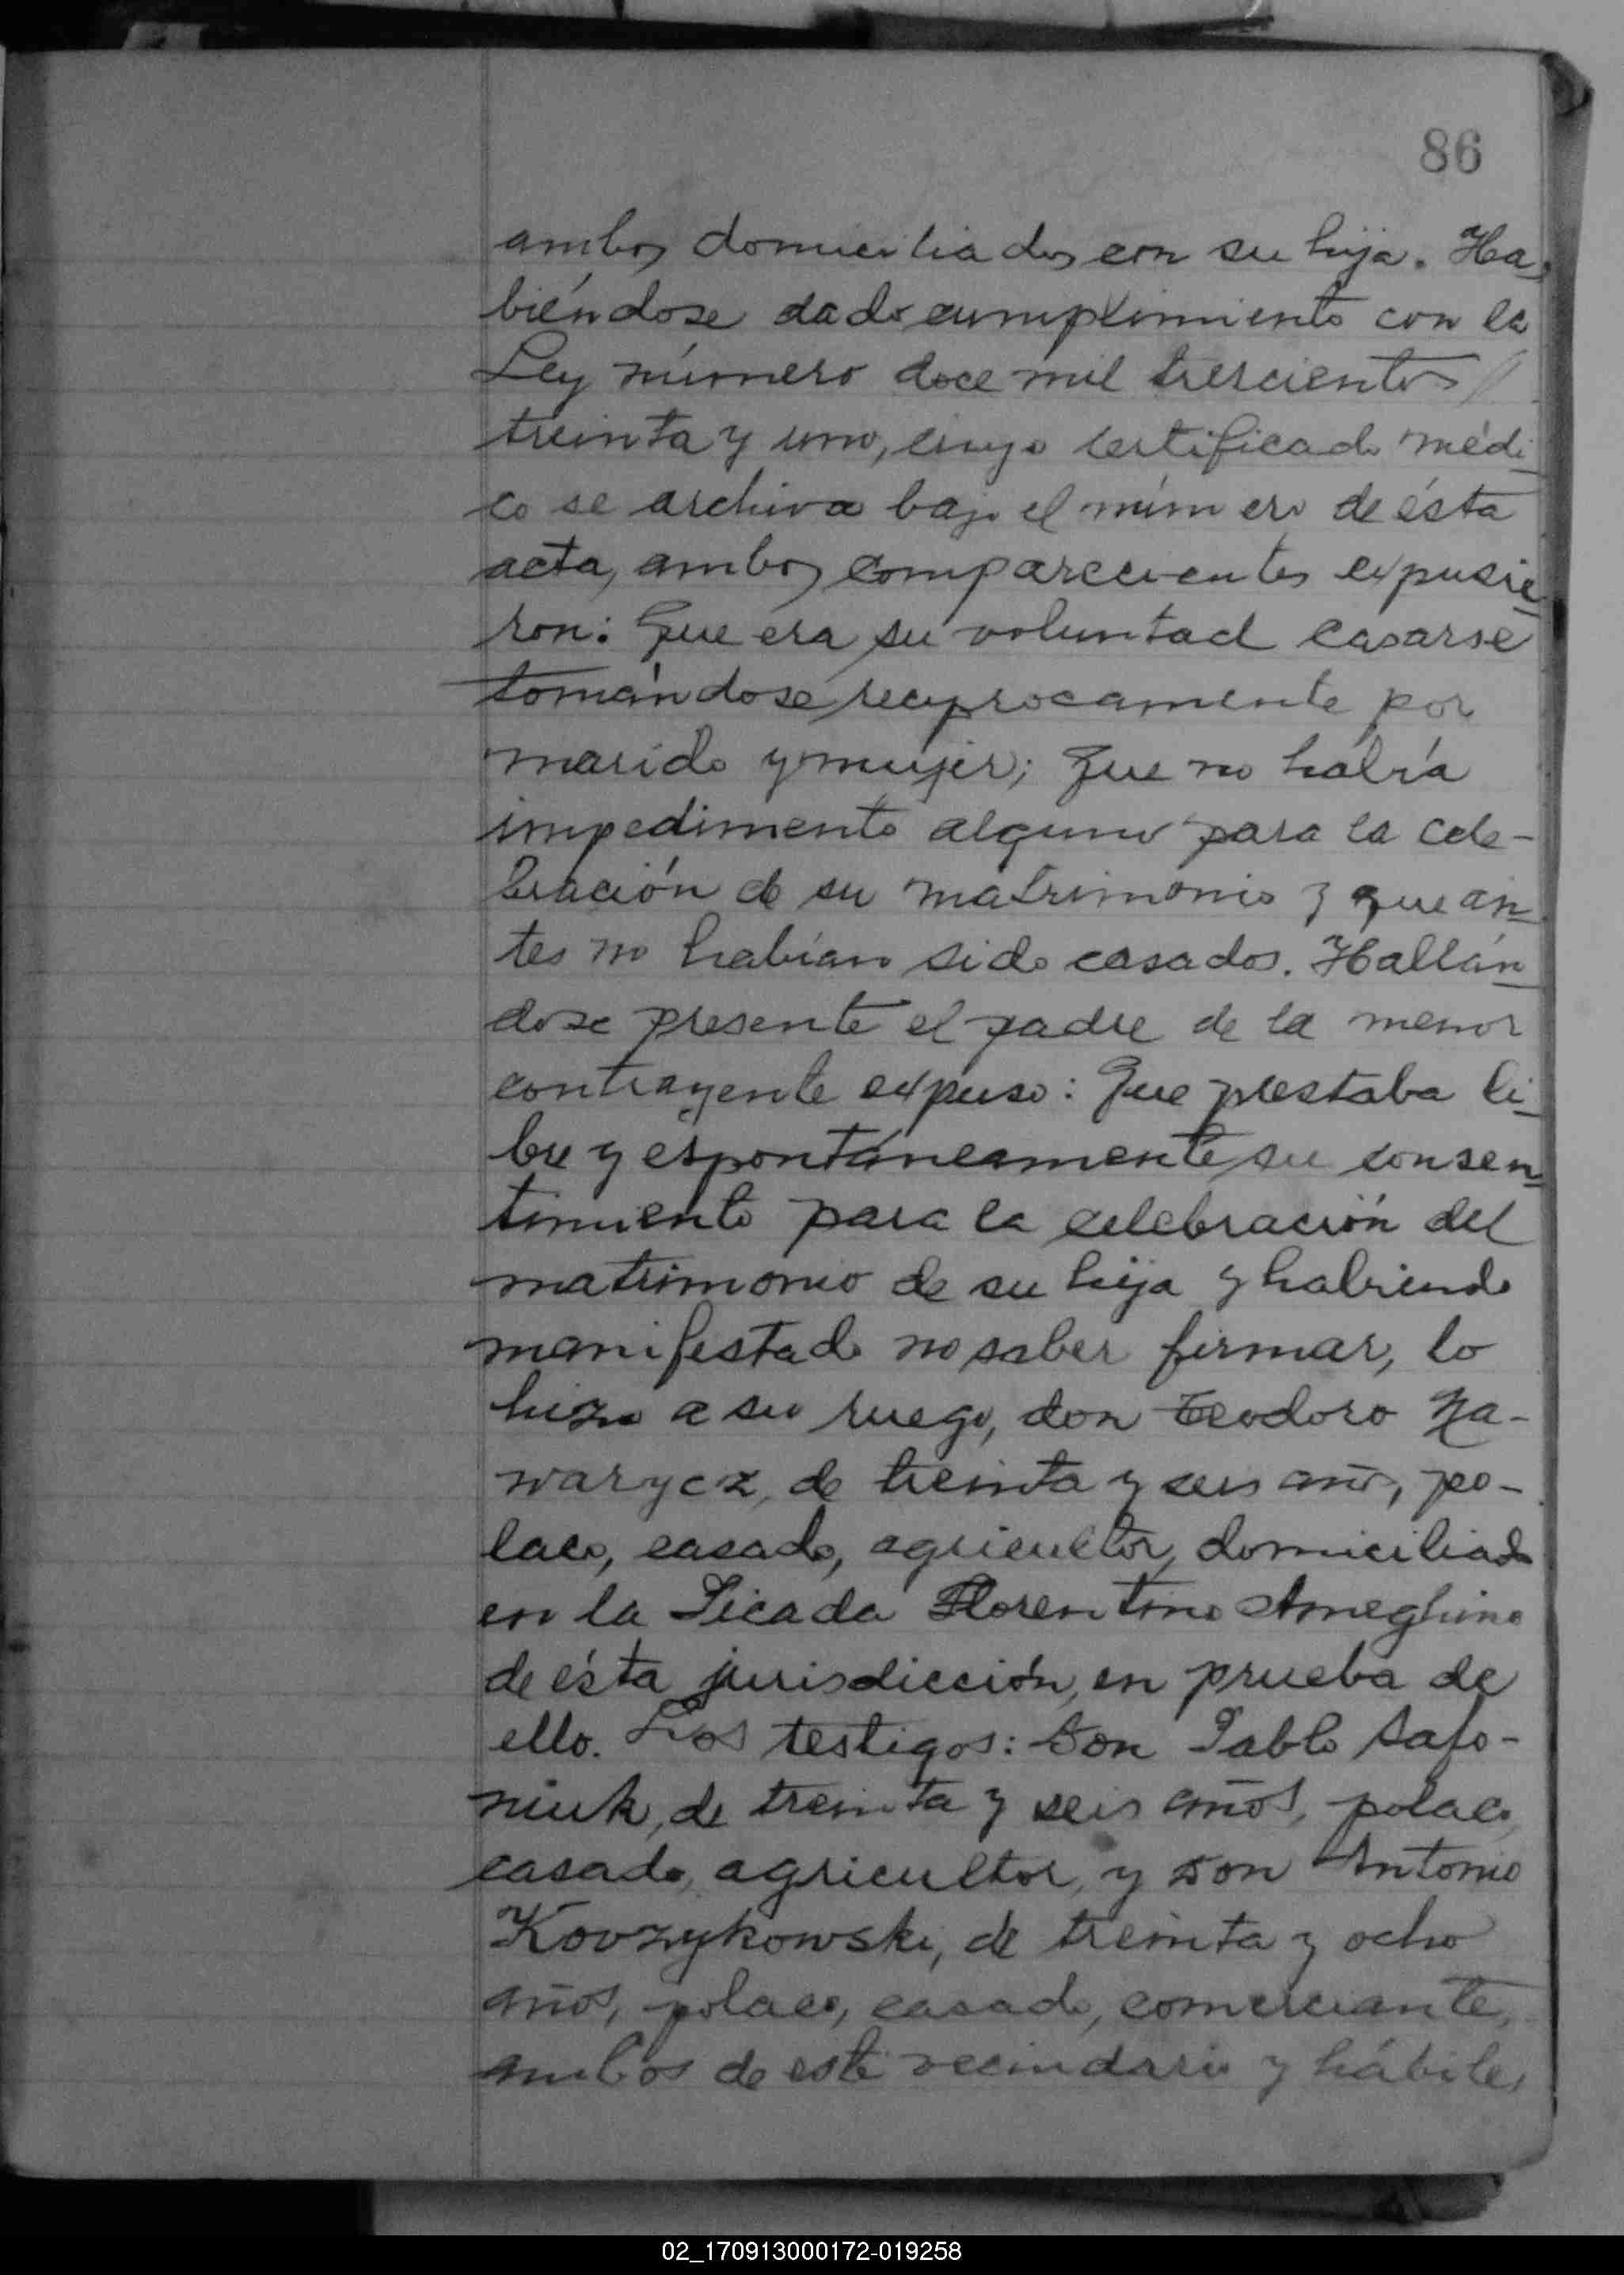 86
ambos domiciliados con su hija. Ha-
biéndose dado cumplimiento con la
Ley número doce mil trescientos
treinta y uno, cuyo certificado médi-
co se archiva bajo el número de ésta
acta, ambos comparecientes expusie-
ron: Que era su voluntad casarse
tomándose recíprocamente por
marido y mujer; Que no había
impedimento alguno para la cele-
bración de su matrimonio y que an-
tes no habían sido casados. Hallán-
dose presente el padre de la menor
contrayente expuso: Que prestaba li-
bre y espontáneamente su consen-
timiento para la celebración del
matrimonio de su hija y habiendo
manifestado no saber firmar, lo
hizo a su ruego, don Teodoro Na-
warycz, de treinta y seis años, po-
laco, casado, agricultor, domiciliado
en la Picada Florentino Ameghino
de ésta jurisdicción, en prueba de
ello. Los testigos: Don Pablo Safo-
niuk, de treinta y seis años, polaco,
casado, agricultor, y Don Antonio
Kovzykowski, de treinta y ocho
años, polaco, casado, comerciante,
ambos de este vecindario y hábiles
02_170913000172-019258